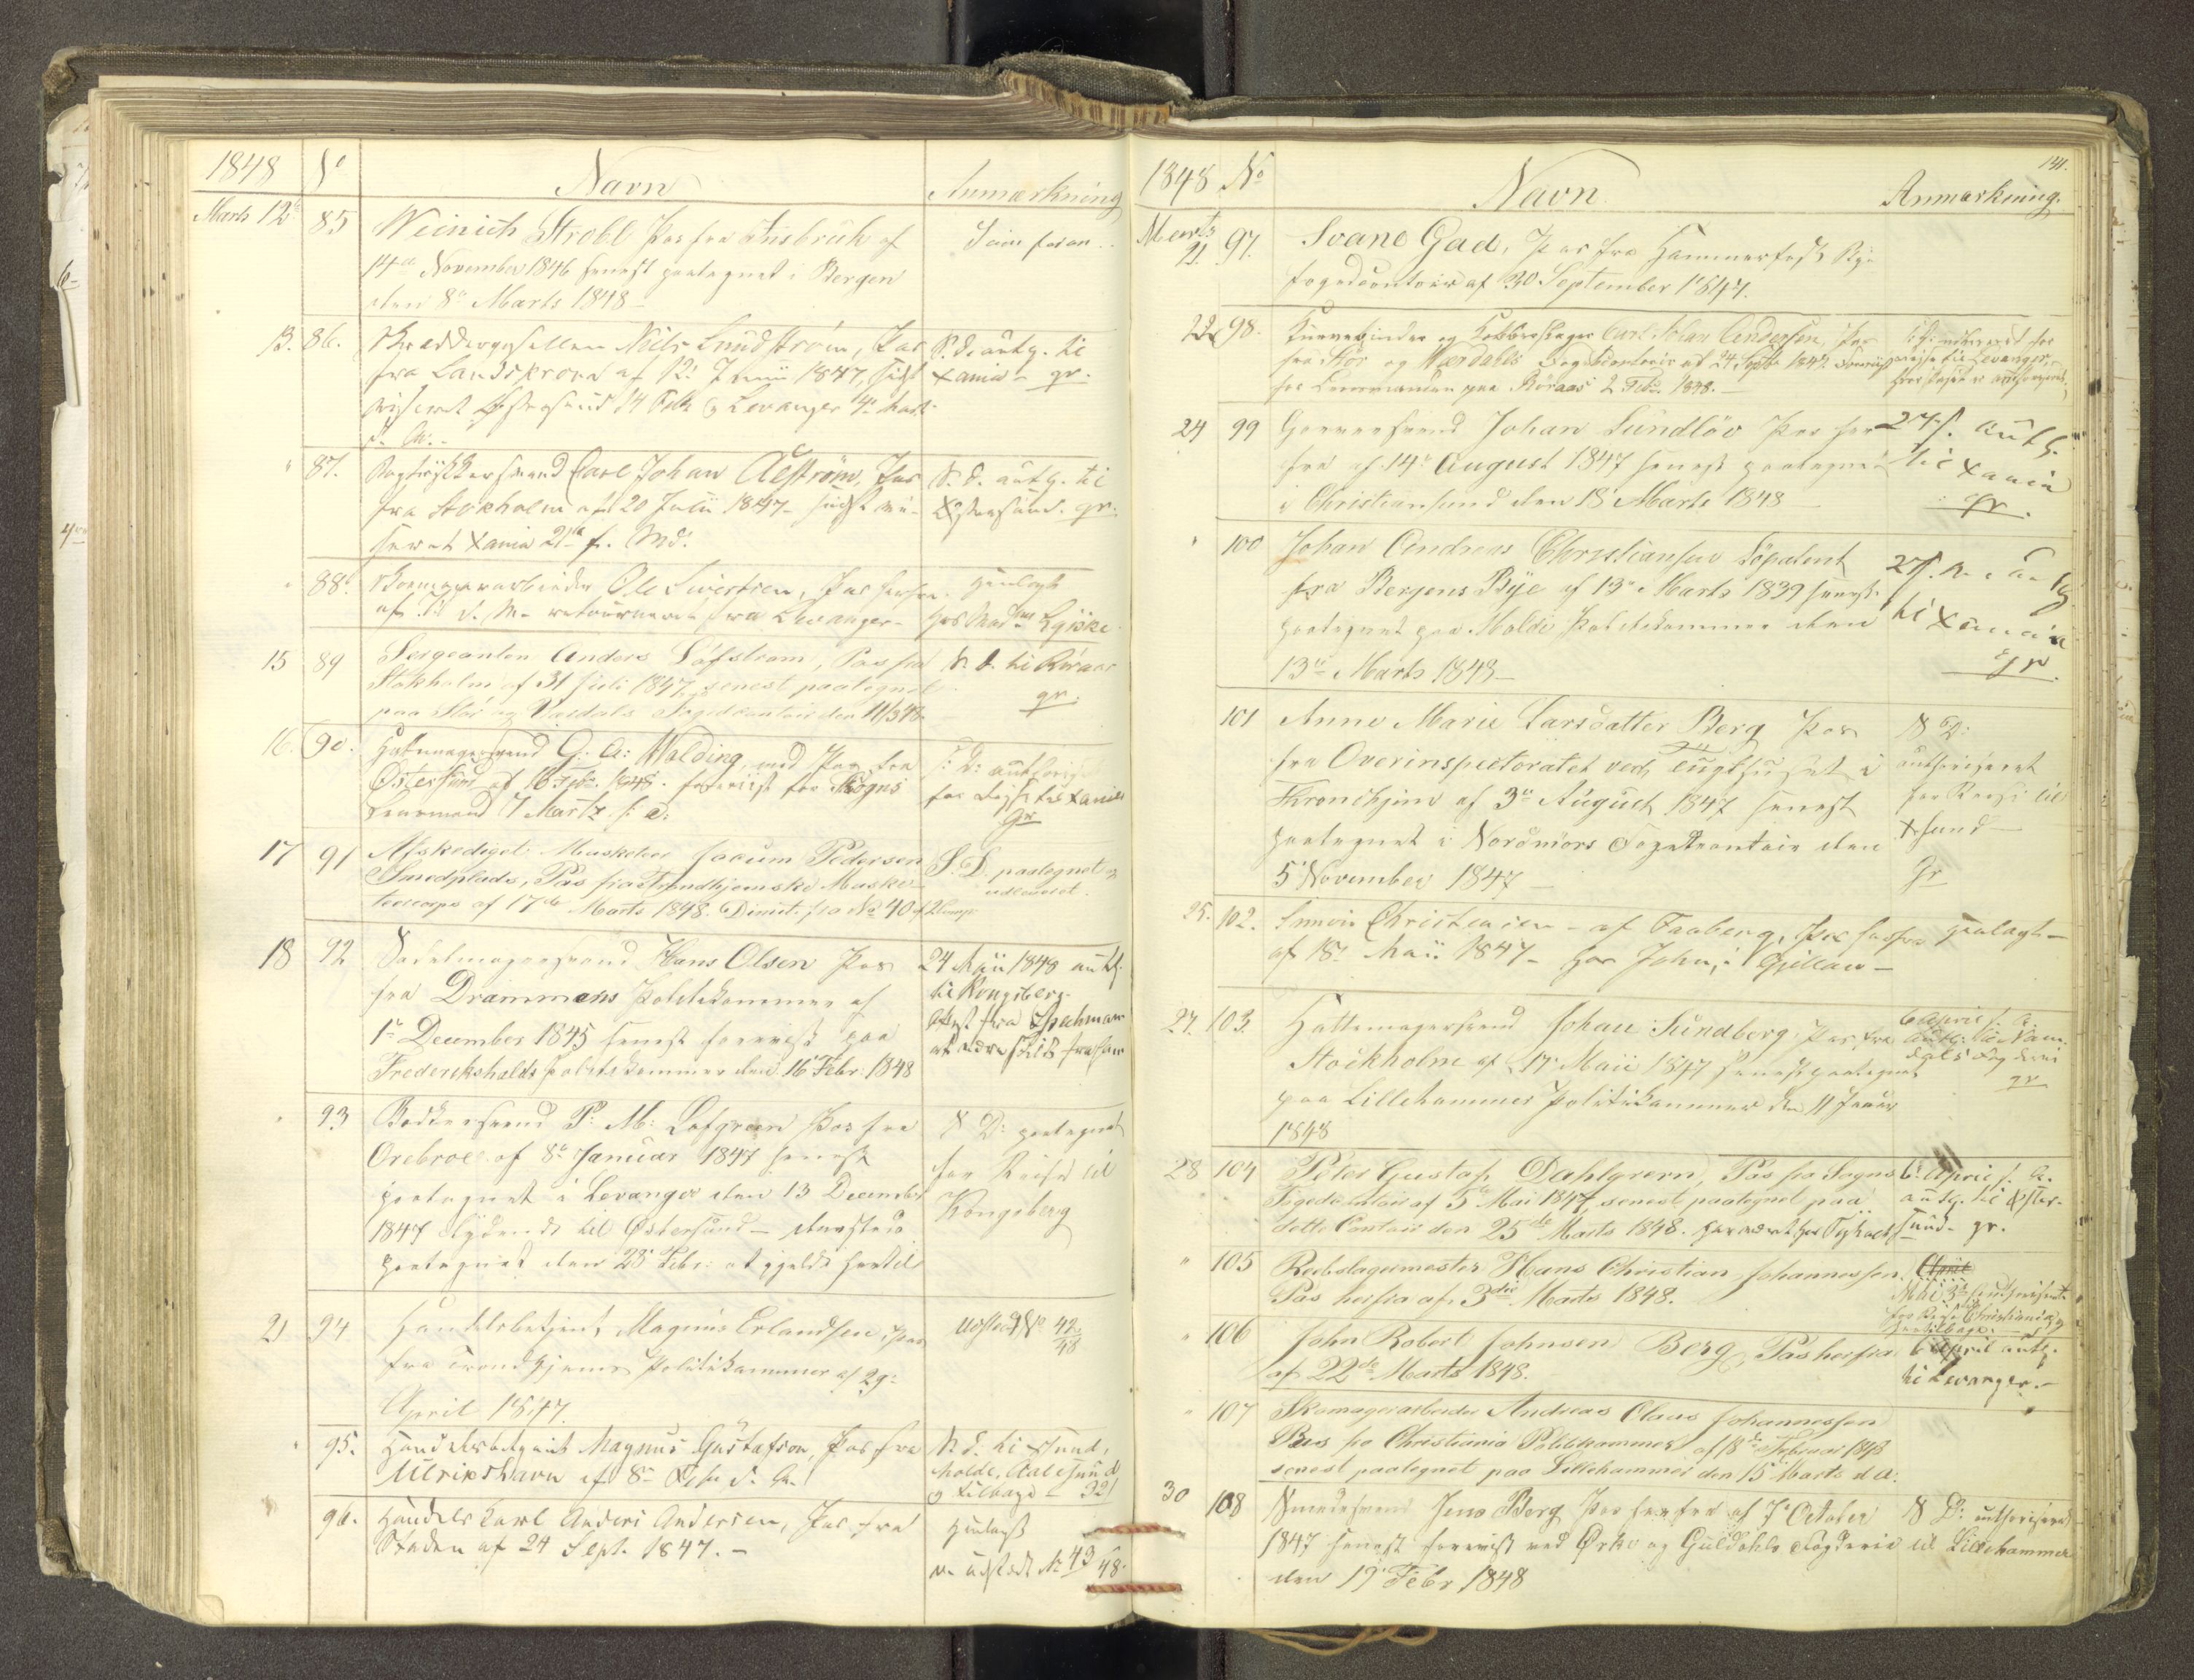 1848 No Navn Anmærkning
Marts 12te 85 Weinich Strobl Pas fra Insbruk af
14de November 1846 senest paategnet i Bergen
den 8de Marts 1848
13. 86. Skræddersvend Niels Lundstrøm, Pas
fra Landskrona af 12 1847, sidst
viseret Østersund 14 Feb. og Levanger 4de
S. D. autg. til
Xania gr.
87. Bogtrykkersvend Carl Johan Alstrøm, Pas
fra Stokholm af 20 Julii 1847 sidst vi-
seret Xania 21de f. Md.
S. D. autg. til
Østersund. gr.
88. Skomagerarbeider Ole Sivertsen, Pas herfra
af d. M. retourneret fra Levanger
henlagt
15 89 Sergeanten Anders Löfstrøm, Pas fra
Stokholm af 31 Juli 1847, senest paategnet
paa Stør og Værdals Fogedcontoir den 11/3 48.
S. D. til Røraas
gr.
16. 90. Hatmagersvend G. A. Walding, med Pas fra
Østersund af 16 1848. foreviist for Skogns
Lensmand 7 Martz s. a.
S. D. authoris
for Reise til Xania
gr
17 91 Afskediget Musketeer Joccum Pedersen
Smedplads, Pas fra Trondhjemske Muske-
teercorps af 17de Marts 1848. Dimit. fra No 40 af 2 Comp.
S. D. paategnet og
udleveret.
18 92 Sadelmagersvend Hans Olsen Pas
fra Drammens Politikammer af
1de December 1845 senest foreviist paa
Frederikshalds Politikammer den 16 Febr. 1848
24 Maii 1848 autg.
til Kongsberg.
93 Bødkersvend P. M. Løfgreen Pas fra
Orebroe af 8de Januar 1847 senest
paategnet i Levanger den 13 December
1847 lydende til Østersund - dersteds
paategnet den 28 Febr. at gjelde hertil
S D: paategnet
for Reise til
Kongsberg
21 94 Handelsbetjent Magnus Erlandsen Pas
fra Trondhjems Politikammer af 29
April 1847.
42/48
95. Handelsbetjent Magnus Gustafson, Pas fra
Ulrikshavn af 8de Feb. d. A.
S. D. til Xsund,
Molde, Aalesund
og tilbage
96. Handels Karl Anders Andersen, Pas fra
Staden af 24 Sept. 1847.
Henlagt
udstedt No 43/48.
141.
1848 No Navn Anmærkning.
Marts 21. 97. Svane Gad, Pas fra Hammerfest By-
fogedcontoir af 30 September 1847.
22 98. og Kobberslager Carl Johan Andersen, Pas
fra Stør og Værdals Fogedcontoir af 24 Septbr 1847. Foreviist
for Lensmanden paa Røraas 2 Feb. 1848.
24 99 Garversvend Johan Lundlöv Pas her
fra af 14de August 1847 senest paategnet
i Christiansund den 18 Marts 1848
27/3. auth.
til Xania
gr.
100 Johan Andreas Christiansen Søpatent
fra Bergens Bye af 13de Marts 1839 senest
paategnet paa Molde Politikammer den
13de Marts 1848
til Xania
gr.
101 Anne Marie Larsdatter Berg Pas
fra Overinspectoratet ved Tugthuset i
Tronhjem af 3de August 1847 senest
paategnet i Nordmørs Fogedcontoir den
5 November 1847
S D:
authoriseret
for Reise til
Xsund
gr
25. 102. Christensen - af Faaberg, Pas herfra
af 18. Maii 1847
27. 103. Hattemagersvend Johan Sundberg Pas fra
Stockholm af 17. Maii 1847 senest paategnet
paa Lillehammer Politikammer den 11 Januar
1848
6 April s. a.
autg. til Nam-
dals Fogderi
gr
28 104 Peter Gustaf Dahlgreen, Pas fra Sogns
Fogedcontoir af 5te Mai 1847, senest paategnet paa
dette Contoir den 25de Marts 1848.
6. April s. a.
autg. til Øster-
sund. gr.
" 105 Rebslagermester Hans Christian Johannessen.
Pas herfra af 3die Marts 1848.
April
Mai 3 authoriseret
for Reise Christiania og
tilbage.
" 106 John Robert Johnsen Berg, Pas herfra
af 22de Marts 1848.
6 April autg.
til Levanger.
" 107 Skomagerarbeider Andreas Claus Johannessen
Pas fra Christiania Politikammer af 18de Februar 1848
senest paategnet paa Lillehammer den 15 Marts d. A.
30 108 Smedesvend Jens Berg Pas herfra af 7 October
1847 senest foreviist ved Ørke og Guldahls Fogderie
den 19 Febr 1848
S D: authoriseret
til Lillehammer